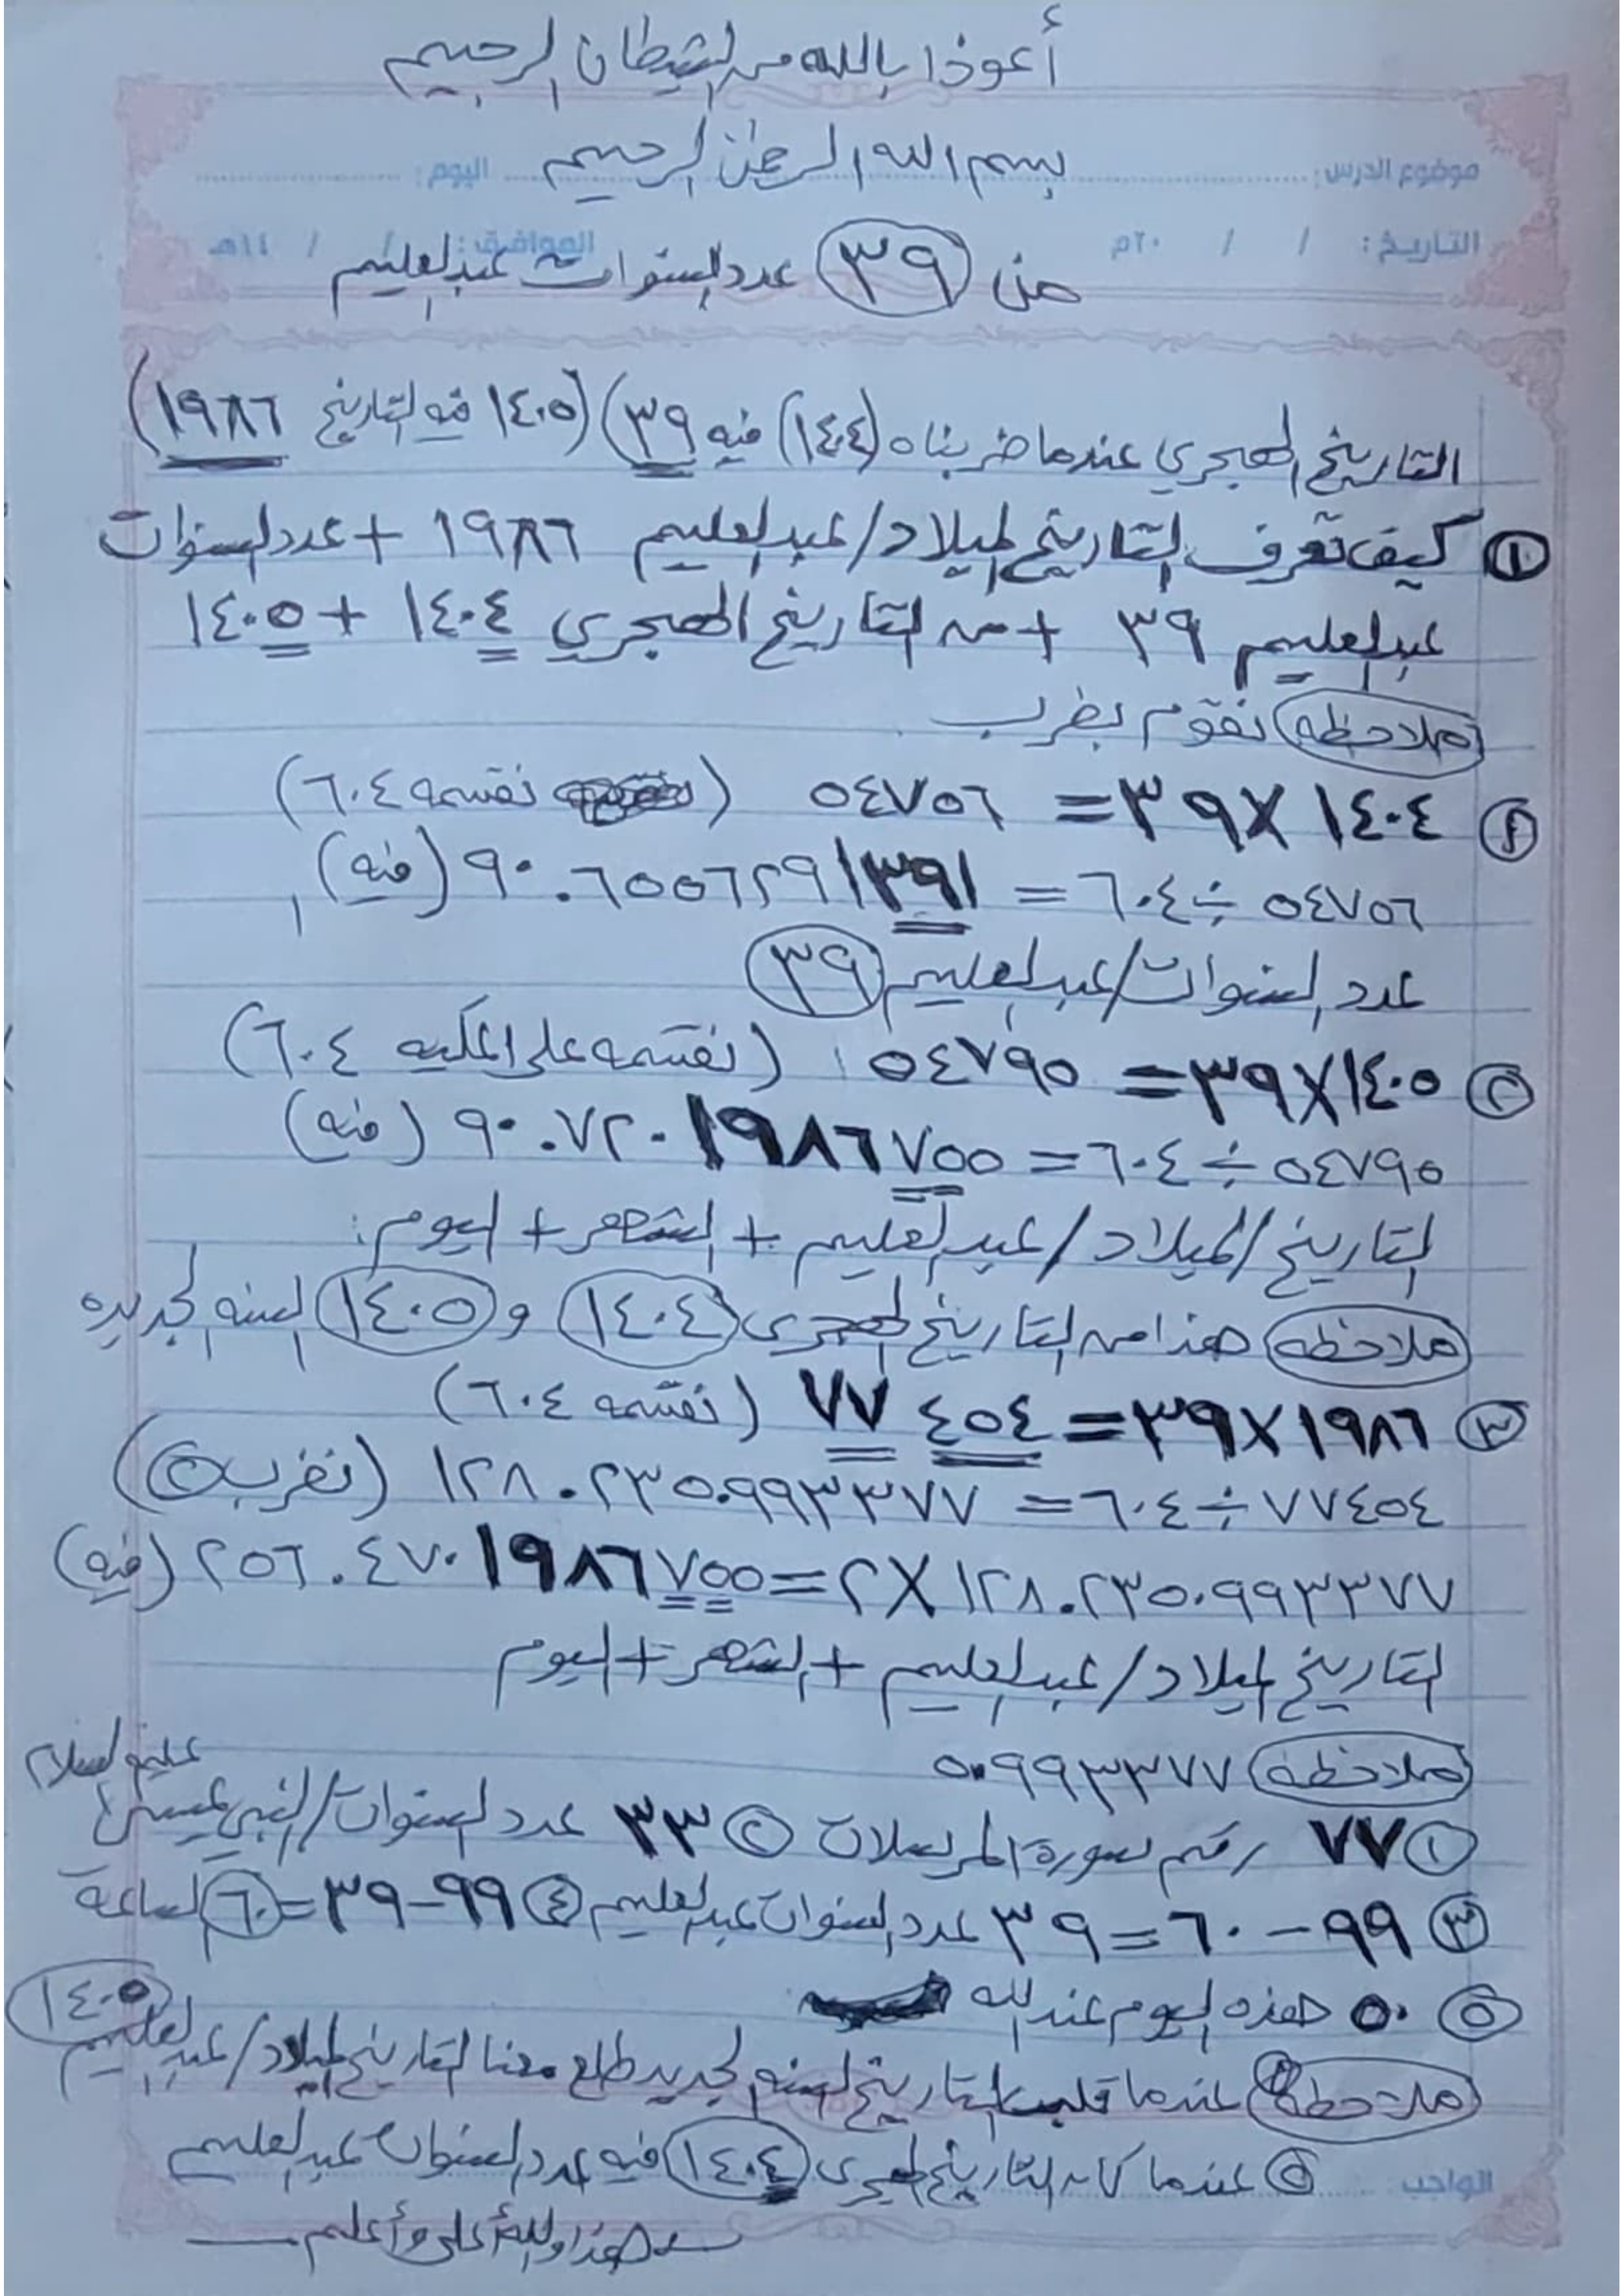 أعوذا بالله من الشيطان الرجيم
بسم الله الرحمن الرحيم
موضوع الدرس: اليوم:
التاريخ: / / ٢٠م الموافق: / / ١٤هـ
من ٣٩ عدد السنوات عبدالعليم
التاريخ الهجري عندما ضربناه (١٤٠٤) فيه ٣٩) (١٤٠٥ فيه التاريخ ١٩٨٦)
① كيف تعرف التاريخ الميلاد/عبدالعليم ١٩٨٦ + عدد السنوات
عبدالعليم ٣٩ + من التاريخ الهجري ١٤٠٤ + ١٤٠٥
ملاحظه نقوم بضرب
١٤٠٤ X ٣٩ = ٥٤٧٥٦ (نقسمه ٦٠٤)
٥٤٧٥٦ ÷ ٦٠٤ = ٩٠.٦٥٥٦٢٩١٣٩١ (فيه)
عدد السنوات/عبدالعليم ٣٩
② ١٤٠٥ X ٣٩ = ٥٤٧٩٥ (نقسمه على المكيه ٦٠٤)
٥٤٧٩٥ ÷ ٦٠٤ = ٩٠.٧٢٠١٩٨٦٧٥٥ (فيه)
التاريخ/الميلاد/عبدالعليم + الشهر + اليوم:
ملاحظه هذا من التاريخ الهجرى ١٤٠٤ و ١٤٠٥ السنه الجديده
③ ١٩٨٦ X ٣٩ = ٧٧٤٥٤ (نقسمه ٦٠٤)
٧٧٤٥٤ ÷ ٦٠٤ = ١٢٨.٢٣٥٠٩٩٣٣٧٧ (نضرب ٢)
١٢٨.٢٣٥٠٩٩٣٣٧٧ X ٢ = ٢٥٦.٤٧٠١٩٨٦٧٥٥ (فيه)
التاريخ الميلاد/عبدالعليم + الشهر + اليوم
ملاحظه ٥٠٩٩٣٣٧٧
① ٧٧ رقم سورة المرسلات ② ٣٣ عدد السنوات/النبي عيسى عليه السلام
③ ٩٩ - ٦٠ = ٣٩ عدد السنوات عبدالعليم ④ ٩٩ - ٣٩ = ٦٠ الساعة
⑤ ٥٠ هذه اليوم عند الله
ملاحظه ① عندما قلب التاريخ السنه الجديد طلع معنا التاريخ الميلاد/عبدالعليم ١٤٠٥
② عندما كان التاريخ الهجرى ١٤٠٤ فيه عدد السنوات عبدالعليم
الواجب
هذا والله أعلى وأعلم